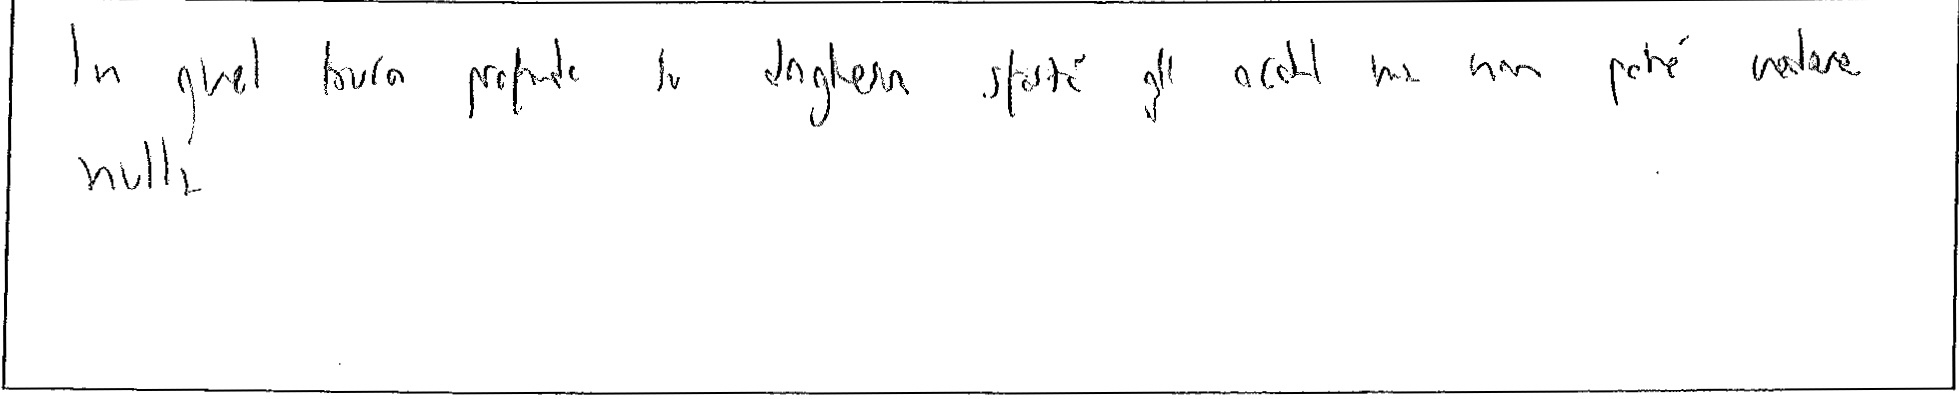 In quel buco profondo lo inghern spostò gli occhi ma non poté vedere
nulla